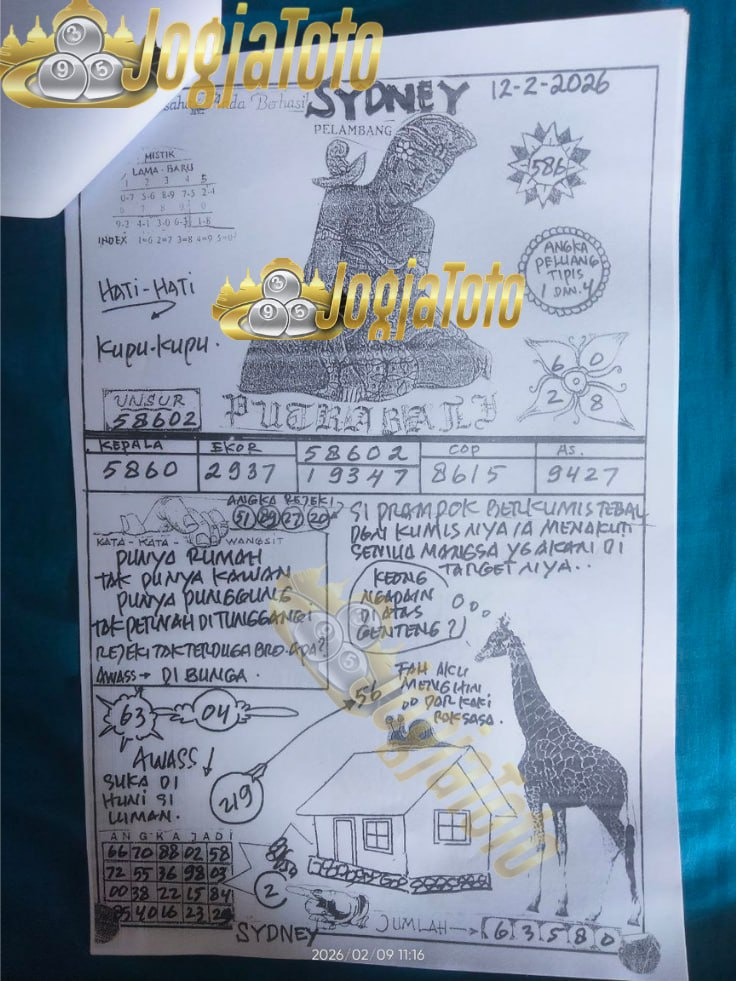 JogjaToto
Anda Berhasil
SYDNEY
12-2-2026
PELAMBANG
MISTIK
LAMA - BARU
1 2 3 4 5
0-7 5-6 8-9 7-5 2-4
6 7 8 9 0
9-2 4-1 3-0 6-3 1-8
INDEX 1=6 2=7 3=8 4=9 5=0
586
ANGKA
PELUANG
TIPIS
1 DAN 4
HATI-HATI
KUPU-KUPU.
JogjaToto
6 0
2 8
UNSUR
58602
PUTRA BALI
KEPALA EKOR 58602 COP AS.
5860 2937 19347 8615 9427
ANGKA REJEKI
51 89 27 20
KATA - KATA - WANGSIT
PUNYA RUMAH
TAK PUNYA KAWAN
PUNYA PUNGGUNG
TAK PERNAH DI TUNGGANGI
REJEKI TAK TERDUGA BRO. APA?
AWASS → DI BUNGA.
SI PRAMPOK BERKUMIS TEBAL
DGN KUMIS NIYA IA MENAKUTI
SEMUA MANGSA YG AKAN DI
TARGET NIYA..
KEONG
NGAPAIN
DI ATAS
GENTENG?
JogjaToto
56
TAU AKU
DARI KAKI
RAKSASA.
63 04
AWASS ↓
SUKA DI
HUNI SI
LUMAN.
219
ANGKA JADI
66 70 88 02 58
72 55 36 98 03
00 38 22 15 84
85 40 16 23
2
SYDNEY
JUMLAH → 6 3 5 8 0
2026/02/09 11:16